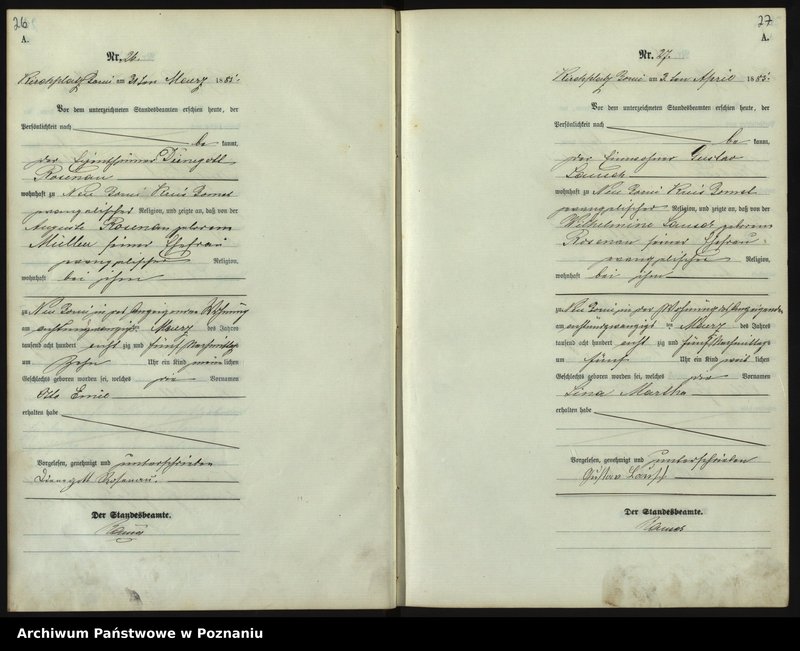 26
A.
Nr. 26.
Kirchplatz Boruï am 31ten Maerz 1885.
Vor dem unterzeichneten Standesbeamten erschien heute, der
Persönlichkeit nach
be kannt,
der Eigenthümer Dienegott
Rosenau
wohnhaft zu Neu Boruï Kreis Bomst
evangelischer Religion, und zeigte an, daß von der
Auguste Rosenau geborenen
Müller seiner Ehefrau
evangelischer Religion,
wohnhaft bei ihm
zu Neu Boruï in des Anzeigenden Wohnung
am achtundzwanzigsten Maerz des Jahres
tausend acht hundert acht zig und fünf Nachmittags
um Zehn Uhr ein Kind männ lichen
Geschlechts geboren worden sei, welches die Vornamen
Otto Emil
erhalten habe
Vorgelesen, genehmigt und unterschrieben
Dienegott Rosenau.
Der Standesbeamte.
27
A.
Nr. 27.
Kirchplatz Boruï am 3. ten April 1885.
Vor dem unterzeichneten Standesbeamten erschien heute, der
Persönlichkeit nach
be kannt,
der Einwohner Gustav
Lausch
wohnhaft zu Neu Boruï Kreis Bomst
evangelischer Religion, und zeigte an, daß von der
Wilhelmine Lausch geborenen
Rosenau seiner Ehefrau
evangelischer Religion,
wohnhaft bei ihm
zu Neu Boruï in der Wohnung des Anzeigenden
am achtundzwanzigsten Maerz des Jahres
tausend acht hundert acht zig und fünf Nachmittags
um fünf Uhr ein Kind weib lichen
Geschlechts geboren worden sei, welches die Vornamen
Lina Martha
erhalten habe
Vorgelesen, genehmigt und unterschrieben
Gustav Lausch
Der Standesbeamte.
Archiwum Państwowe w Poznaniu